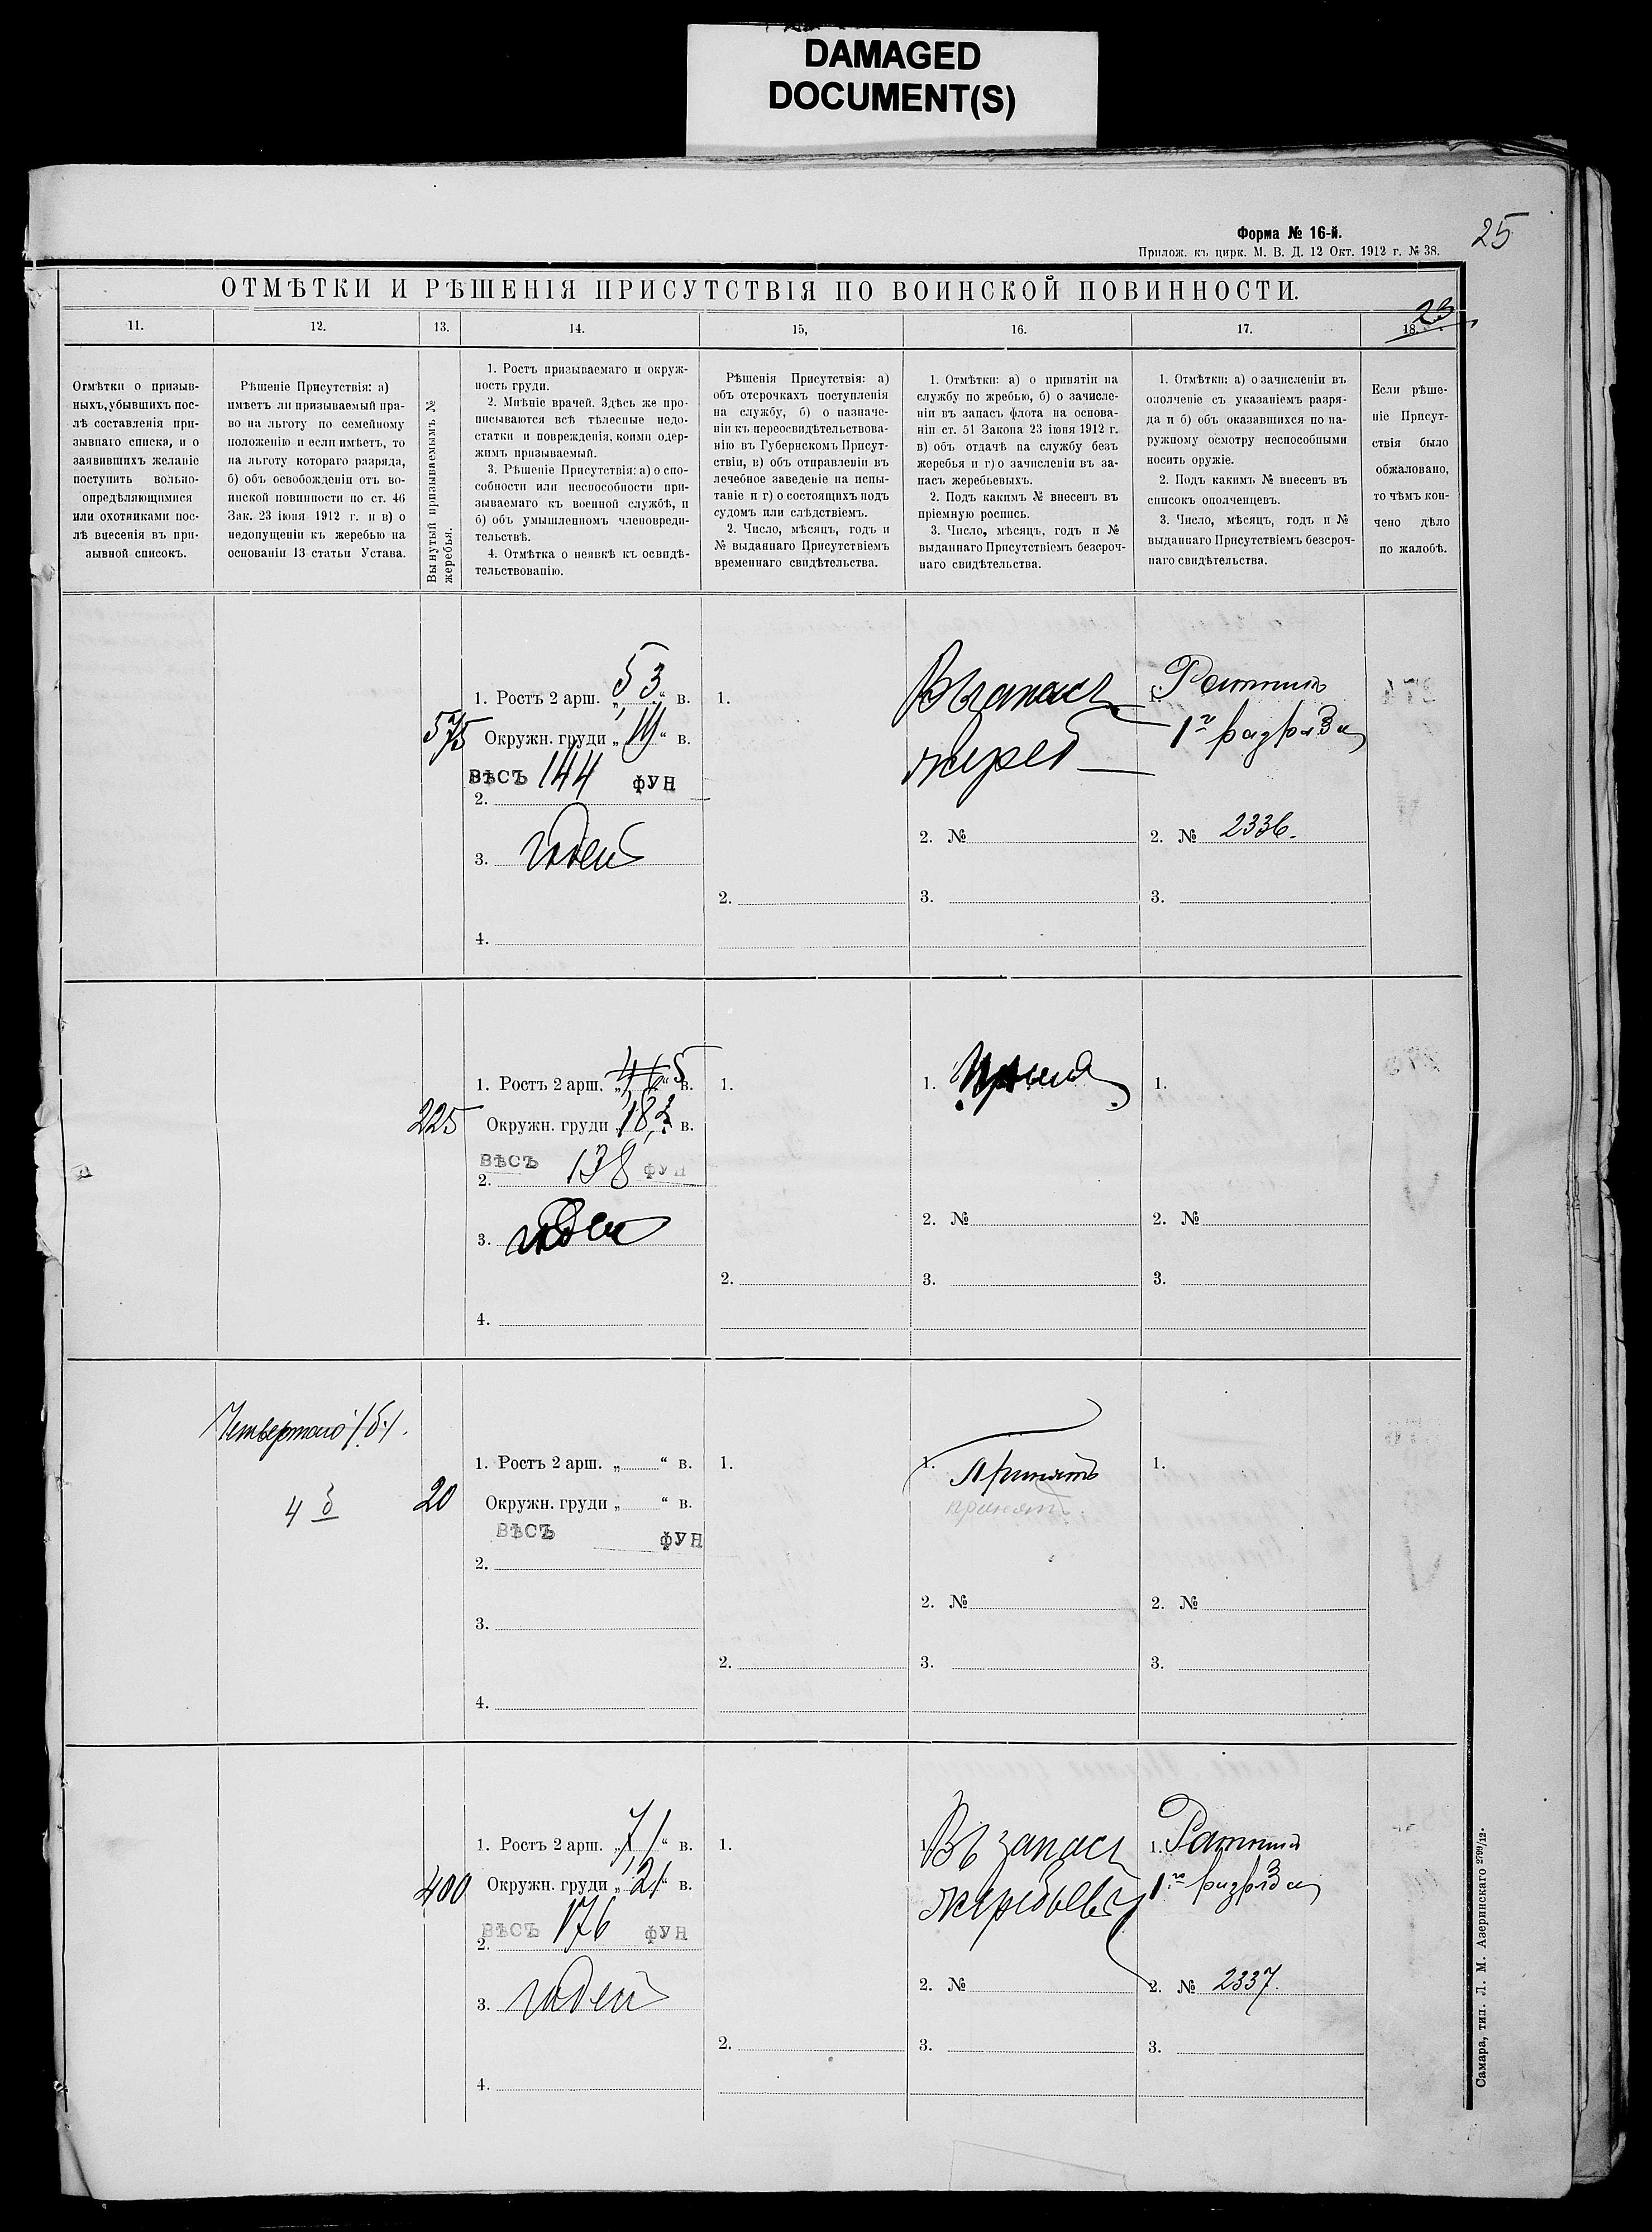 DAMAGED
DOCUMENT(S)
Форма № 16-й.
Прилож. къ цирк. М. В. Д. 12 Окт. 1912 г. № 38.
25
ОТМѢТКИ И РѢШЕНІЯ ПРИСУТСТВІЯ ПО ВОИНСКОЙ ПОВИННОСТИ.
23
11.
12.
13.
14.
15,
16.
17.
18.
Отмѣтки о призыв-
ныхъ, убывшихъ пос-
лѣ составленія при-
зывнаго списка, и о
заявившихъ желаніе
поступить вольно-
опредѣляющимися
или охотниками пос-
лѣ внесенія въ при-
зывной списокъ.
Рѣшеніе Присутствія: а)
имѣетъ ли призываемый пра-
во на льготу по семейному
положенію и если имѣетъ, то
на льготу котораго разряда,
б) объ освобожденіи отъ во-
инской повинности по ст. 46
Зак. 23 іюня 1912 г. и в) о
недопущеніи къ жеребью на
основаніи 13 статьи Устава.
Вынутый призываемымъ №
жеребья.
1. Ростъ призываемаго и окруж-
ность груди.
2. Мнѣніе врачей. Здѣсь же про-
писываются всѣ тѣлесные недо-
статки и поврежденія, коими одер-
жимъ призываемый.
3. Рѣшеніе Присутствія: а) о спо-
собности или неспособности при-
зываемаго къ военной службѣ, и
б) объ умышленномъ членовреди-
тельствѣ.
4. Отмѣтка о неявкѣ къ освидѣ-
тельствованію.
Рѣшенія Присутствія: а)
объ отсрочкахъ поступленія
на службу, б) о назначе-
ніи къ переосвидѣтельствова-
нію въ Губернскомъ Присут-
ствіи, в) объ отправленіи въ
лечебное заведеніе на испы-
таніе и г) о состоящихъ подъ
судомъ или слѣдствіемъ.
2. Число, мѣсяцъ, годъ и
№ выданнаго Присутствіемъ
временнаго свидѣтельства.
1. Отмѣтки: а) о принятіи на
службу по жребью, б) о зачисле-
ніи въ запасъ флота на основа-
ніи ст. 51 Закона 23 іюня 1912 г.
в) объ отдачѣ на службу безъ
жеребья и г) о зачисленіи въ за-
пасъ жеребьевыхъ.
2. Подъ какимъ № внесенъ въ
пріемную роспись.
3. Число, мѣсяцъ, годъ и №
выданнаго Присутствіемъ безсроч-
наго свидѣтельства.
1. Отмѣтки: а) о зачисленіи въ
ополченіе съ указаніемъ разря-
да и б) объ оказавшихся по на-
ружному осмотру неспособными
носить оружіе.
2. Подъ какимъ № внесенъ въ
списокъ ополченцевъ.
3. Число, мѣсяцъ, годъ и №
выданнаго Присутствіемъ безсроч-
наго свидѣтельства.
Если рѣше-
ніе Присут-
ствія было
обжаловано,
то чѣмъ кон-
чено дѣло
по жалобѣ.
575
1. Ростъ 2 арш. „5,3“ в.
Окружн. груди „19“ в.
ВѢСЪ 144 ФУН
2.
3. годенъ
4.
1.
2.
Въ запасъ
жереб
2. №
3.
1. Ратникъ
1го разряда
2. № 2336.
3.
225
1. Ростъ 2 арш. „4,6“ в. 5
Окружн. груди „18,2“ в.
ВѢСЪ 138 ФУН
2.
3. годен
4.
1.
2.
1. Принят
2. №
3.
1.
2. №
3.
Четвертаго /б./.
4 б
20
1. Ростъ 2 арш. „ “ в.
Окружн. груди „ “ в.
ВѢСЪ ФУН
2.
3.
4.
1.
2.
1. Принятъ
принят.
2. №
3.
1.
2. №
3.
400
1. Ростъ 2 арш. „7,1“ в.
Окружн. груди „21“ в.
ВѢСЪ 176 ФУН
2.
3. годен
4.
1.
2.
1. Въ запасъ
жеребьевъ
2. №
3.
1. Ратникъ
1го разряда
2. № 2337.
3.
Самара, тип. Л. М. Азеринскаго 2799/12.